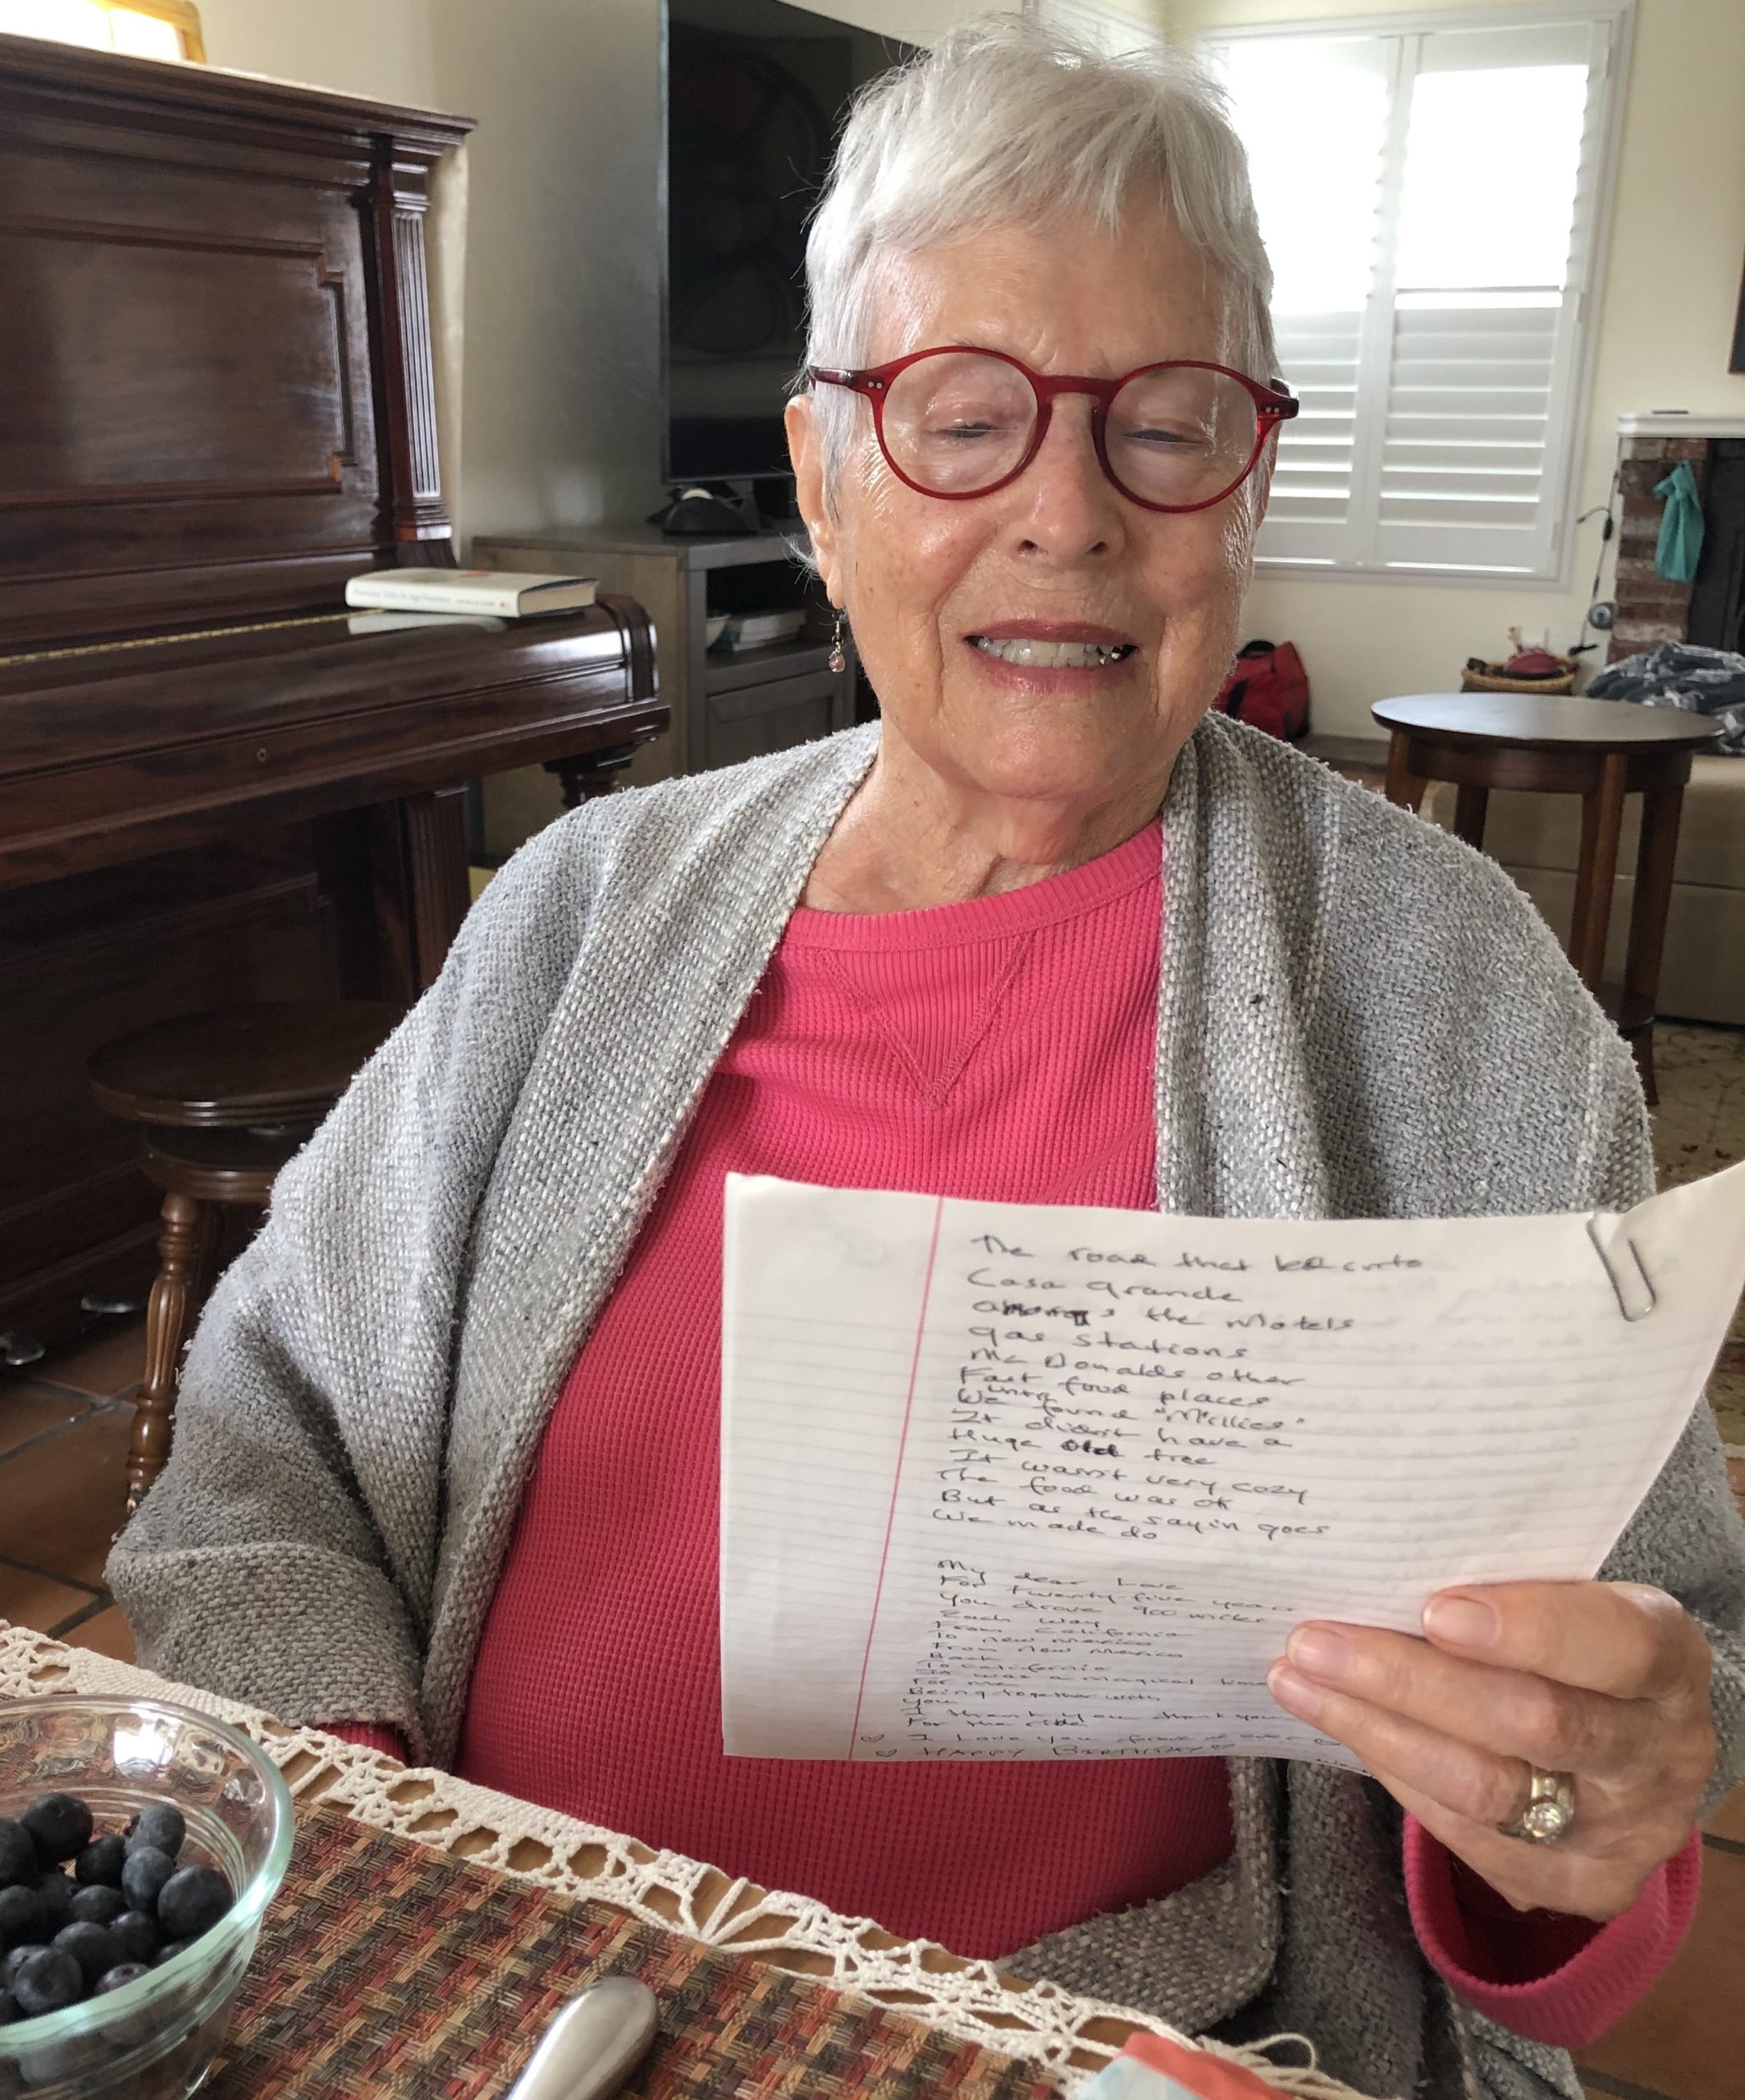 The road that led into
Casa Grande
the Motels
gas stations
Mc Donalds other
Fast food places
until
We found "Millies"
It didn't have a
Huge old tree
It wasn't very cozy
The food was ok
But as the sayin goes
We made do
My dear Love
For twenty-five years
You drove 900 miles
Each way
From California
To new mexico
From New Mexico
Back
To California
It was a magical time
For me
Being together with
You
I thank you thank you
For the ride
I Love you
HAPPY BIRTHDAY